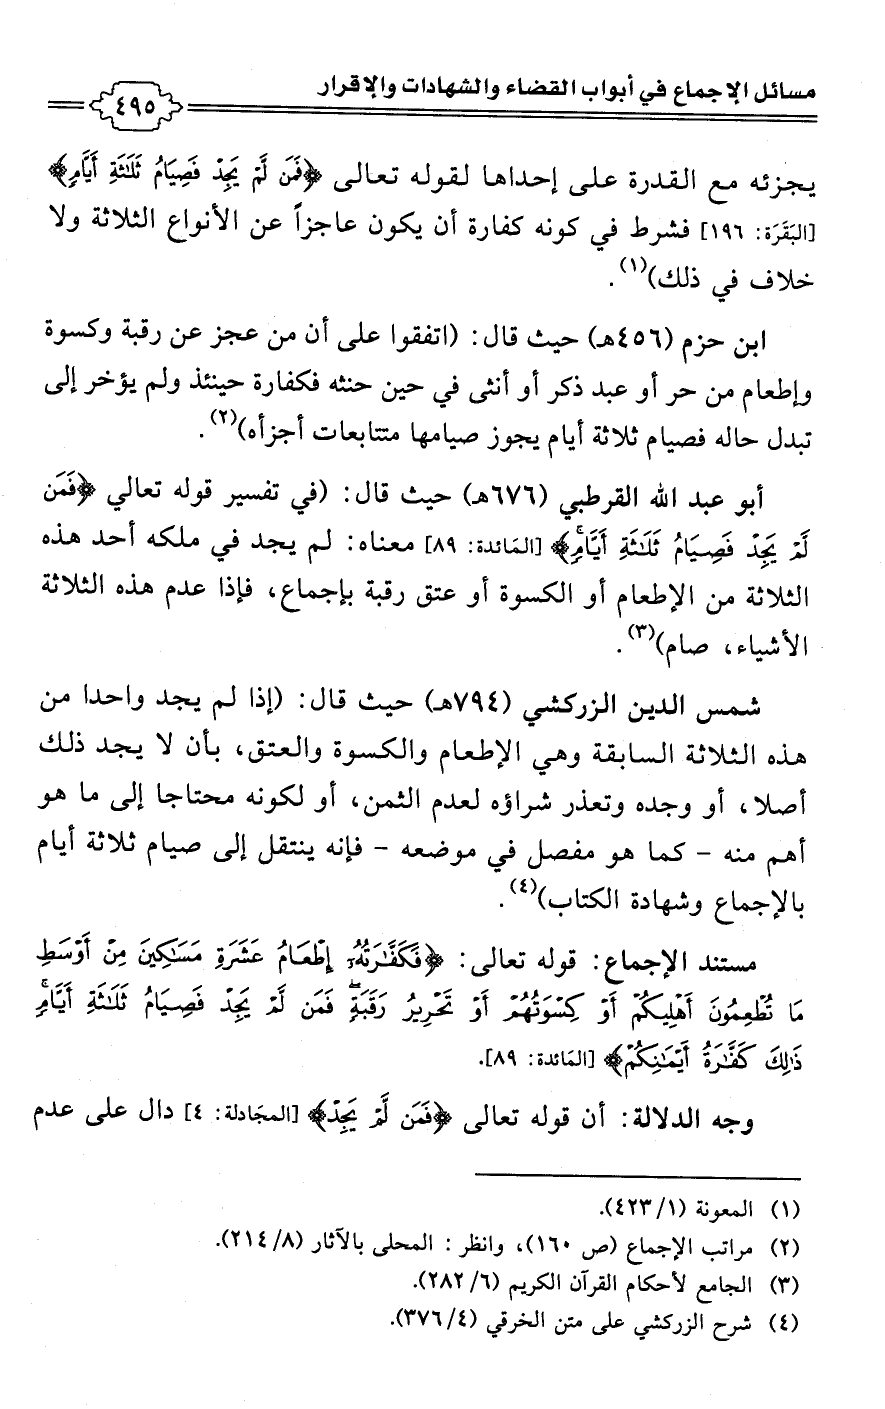 مسائل الإجماع في أبواب القضاء والشهادات والإقرار
٤٩٥
يجزئه مع القدرة على إحداها لقوله تعالى ﴿فَمَن لَّمْ يَجِدْ فَصِيَامُ ثَلَٰثَةِ أَيَّامٍ﴾
[البَقَرَة: ١٩٦] فشرط في كونه كفارة أن يكون عاجزاً عن الأنواع الثلاثة ولا
خلاف في ذلك)(١).
ابن حزم (٤٥٦هـ) حيث قال: (اتفقوا على أن من عجز عن رقبة وكسوة
وإطعام من حر أو عبد ذكر أو أنثى في حين حنثه فكفارة حينئذ ولم يؤخر إلى
تبدل حاله فصيام ثلاثة أيام يجوز صيامها متتابعات أجزأه)(٢).
أبو عبد الله القرطبي (٦٧٦هـ) حيث قال: (في تفسير قوله تعالي ﴿فَمَن
لَّمْ يَجِدْ فَصِيَامُ ثَلَٰثَةِ أَيَّامٍۚ﴾ [المَائدة: ٨٩] معناه: لم يجد في ملكه أحد هذه
الثلاثة من الإطعام أو الكسوة أو عتق رقبة بإجماع، فإذا عدم هذه الثلاثة
الأشياء، صام)(٣).
شمس الدين الزركشي (٧٩٤هـ) حيث قال: (إذا لم يجد واحدا من
هذه الثلاثة السابقة وهي الإطعام والكسوة والعتق، بأن لا يجد ذلك
أصلا، أو وجده وتعذر شراؤه لعدم الثمن، أو لكونه محتاجا إلى ما هو
أهم منه - كما هو مفصل في موضعه - فإنه ينتقل إلى صيام ثلاثة أيام
بالإجماع وشهادة الكتاب)(٤).
مستند الإجماع: قوله تعالى: ﴿فَكَفَّٰرَتُهُۥٓ إِطْعَامُ عَشَرَةِ مَسَٰكِينَ مِنْ أَوْسَطِ
مَا تُطْعِمُونَ أَهْلِيكُمْ أَوْ كِسْوَتُهُمْ أَوْ تَحْرِيرُ رَقَبَةٍۖ فَمَن لَّمْ يَجِدْ فَصِيَامُ ثَلَٰثَةِ أَيَّامٍۚ
ذَٰلِكَ كَفَّٰرَةُ أَيْمَٰنِكُمْ﴾ [المَائدة: ٨٩].
وجه الدلالة: أن قوله تعالى ﴿فَمَن لَّمْ يَجِدْ﴾ [المجَادلة: ٤] دال على عدم
(١) المعونة (١/ ٤٢٣).
(٢) مراتب الإجماع (ص ١٦٠)، وانظر : المحلى بالآثار (٨/ ٢١٤).
(٣) الجامع لأحكام القرآن الكريم (٦/ ٢٨٢).
(٤) شرح الزركشي على متن الخرقي (٤/ ٣٧٦).